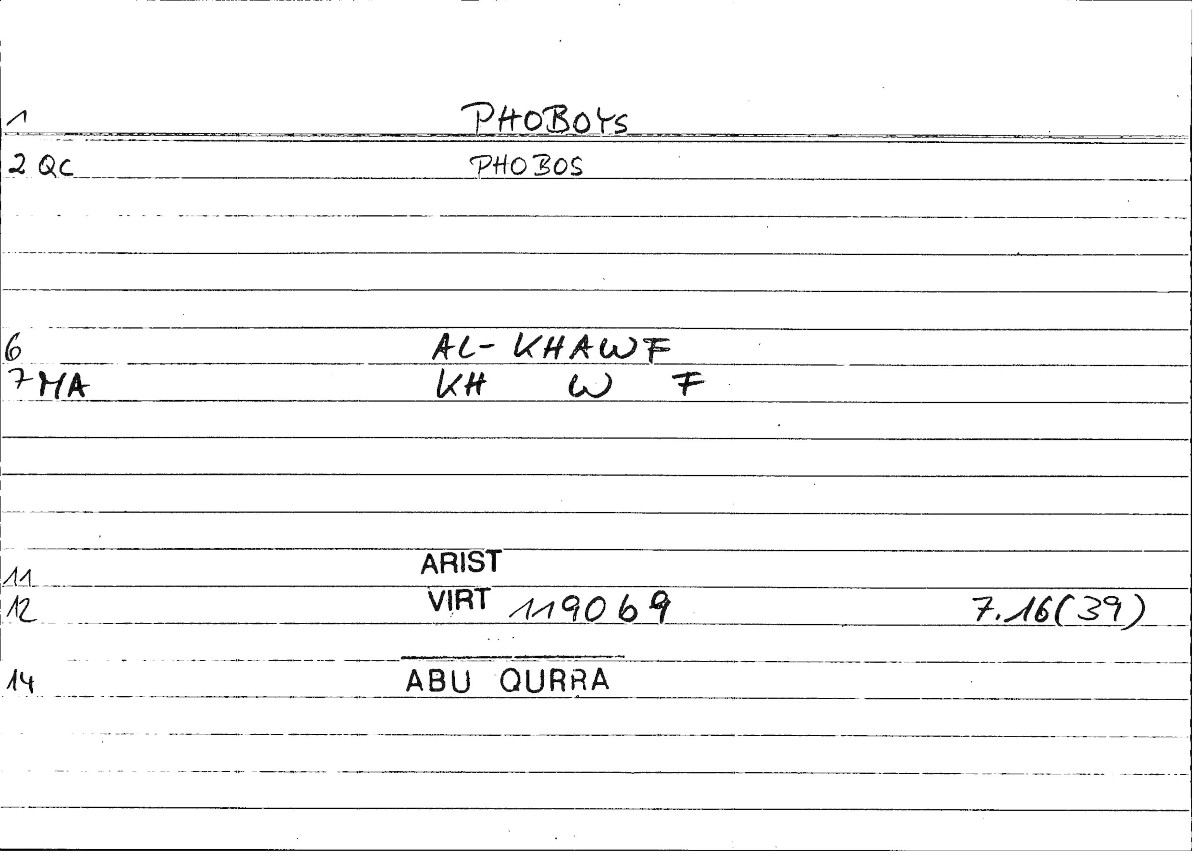 1 PHOBOYS
2 QC PHOBOS
6 AL-KHAWF
7 MA KH W F
11 ARIST
12 VIRT 119069 7.16(39)
14 ABU QURRA